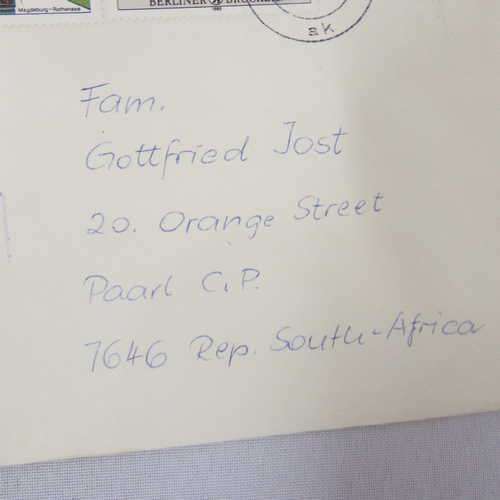 Magdeburg-Rothensee
BERLINER
ak
Fam.
Gottfried Jost
20. Orange Street
Paarl C.P.
7646 Rep. South-Africa